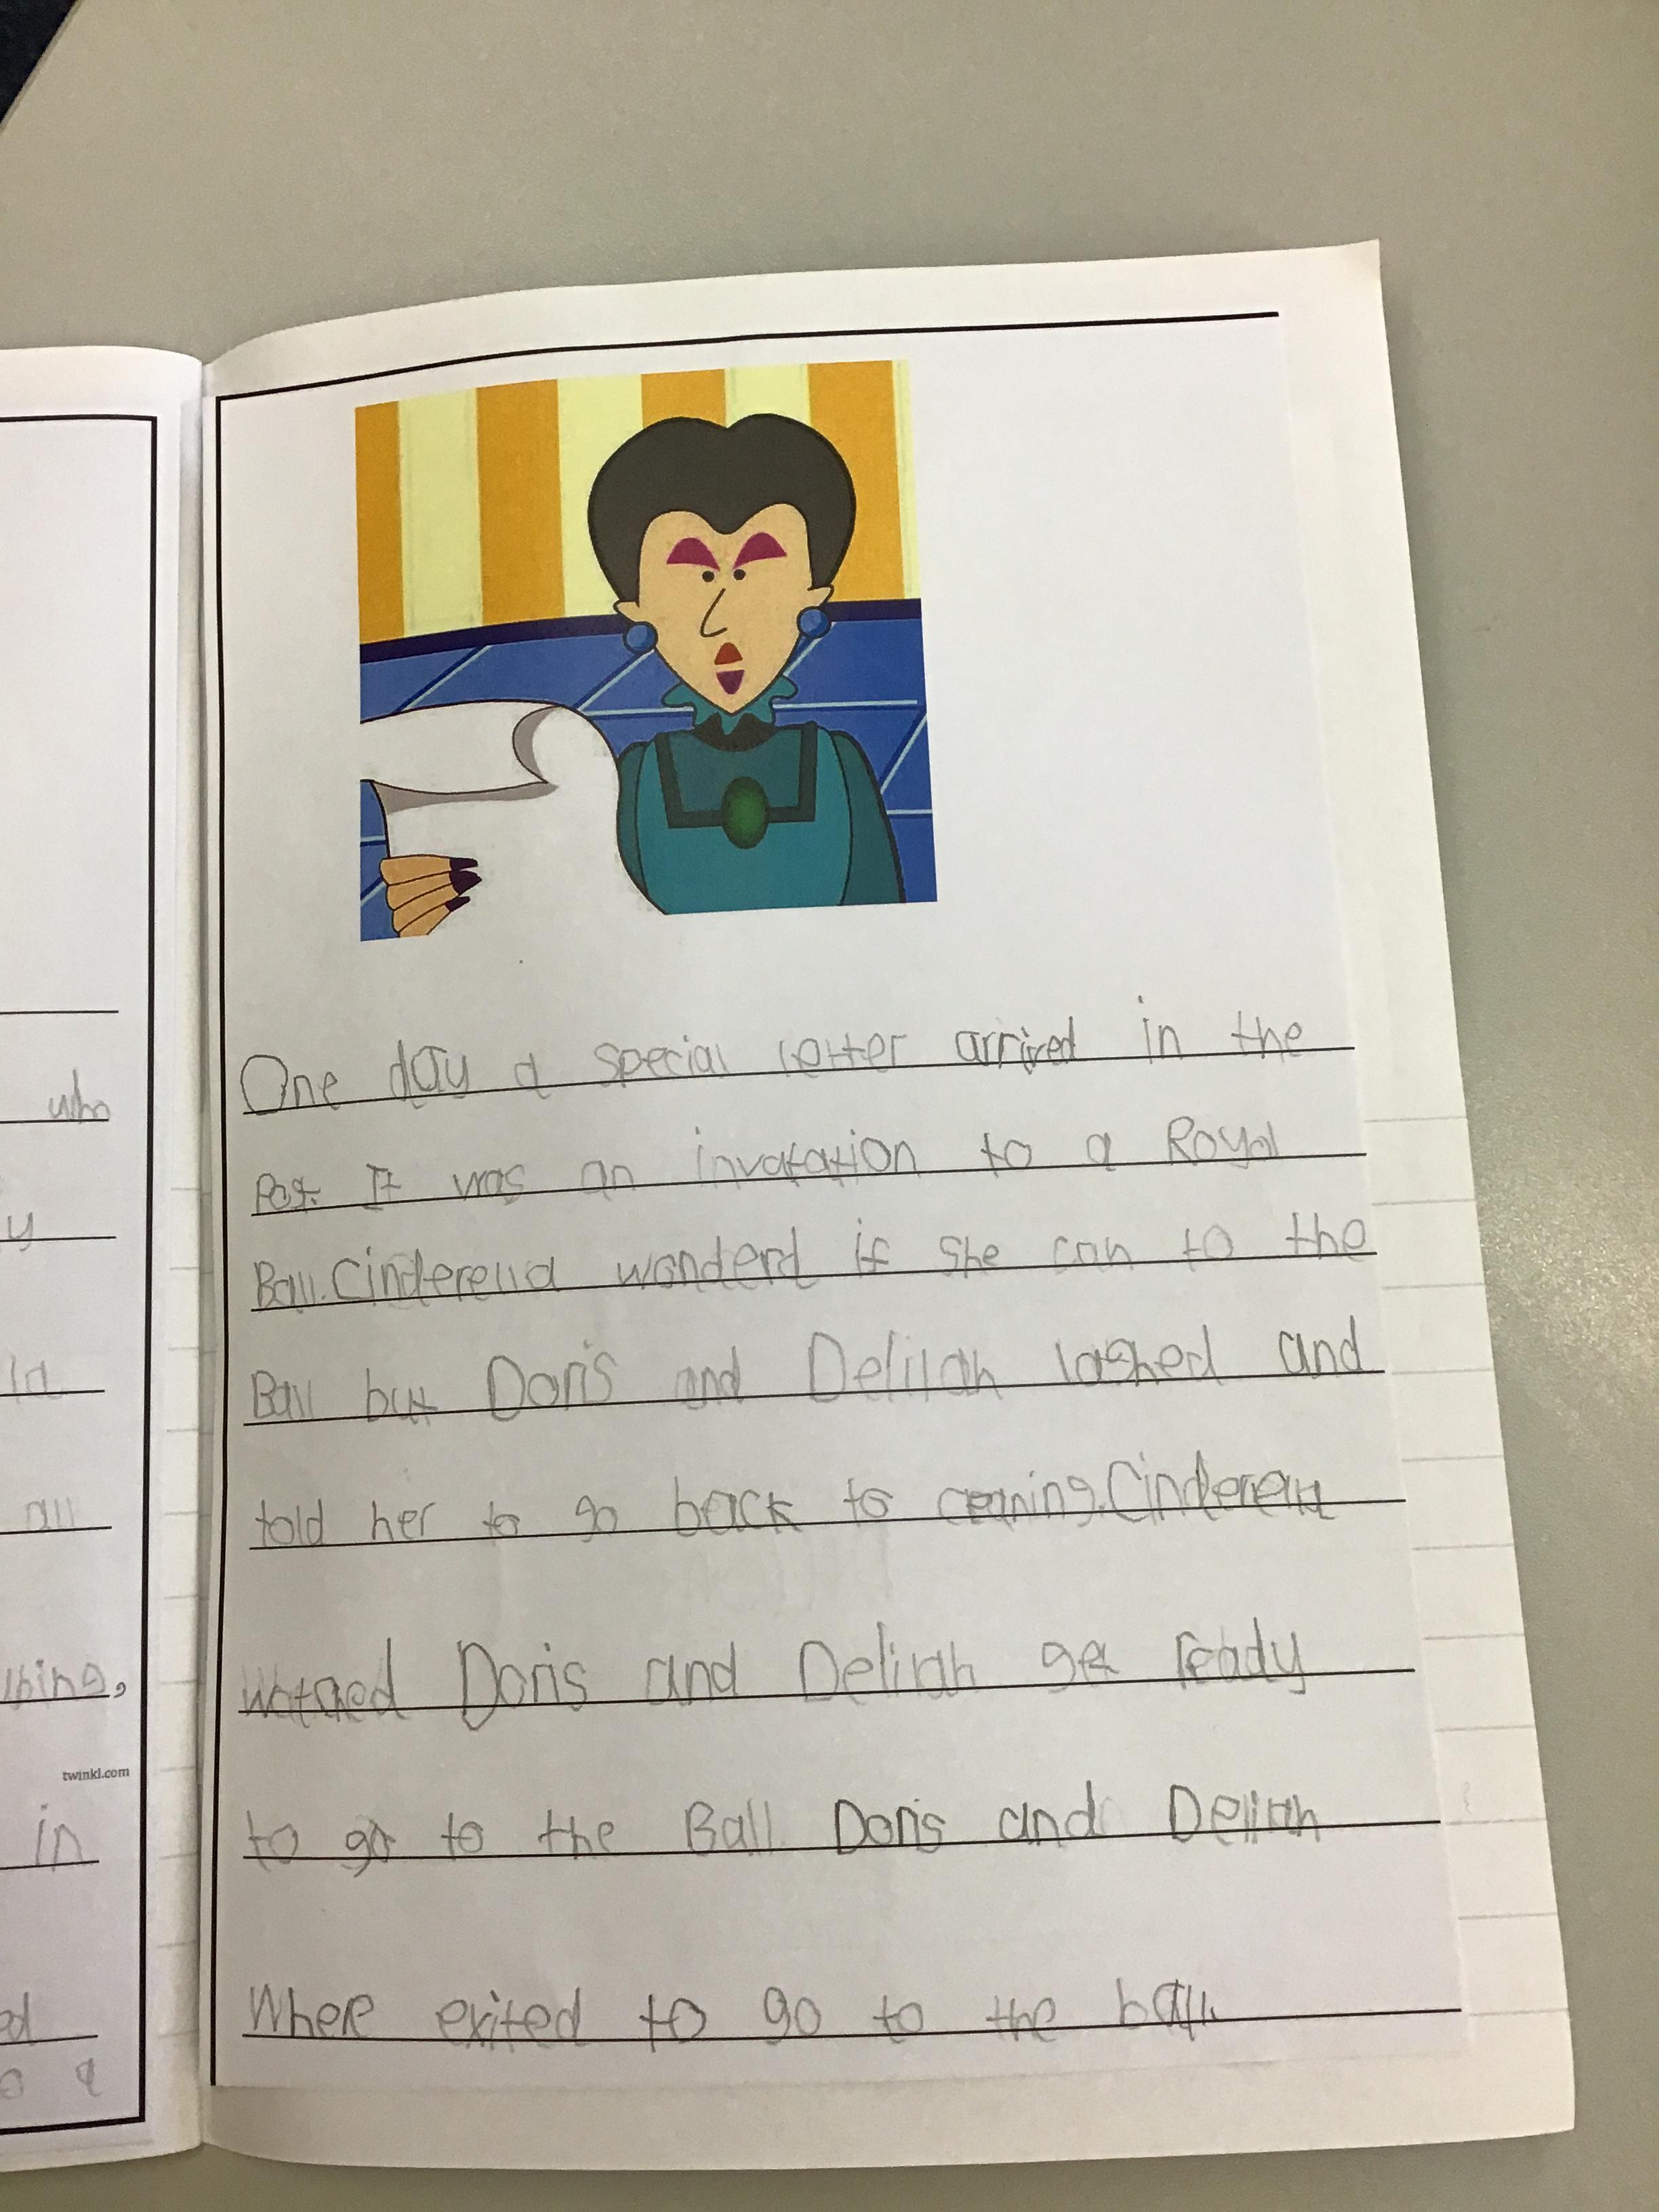 who
y
all
in
twinkl.com
ed
One day a special letter arrived in the
Post. It was an invatation to a Royal
Ball. Cinderella wonderd if she can to the
Ball but Doris and Delilah lashed and
told her to go back to ceaning. Cinderella
watched Doris and Delilah get ready
to go to the Ball. Doris and Delilah
Where exited to go to the ball.